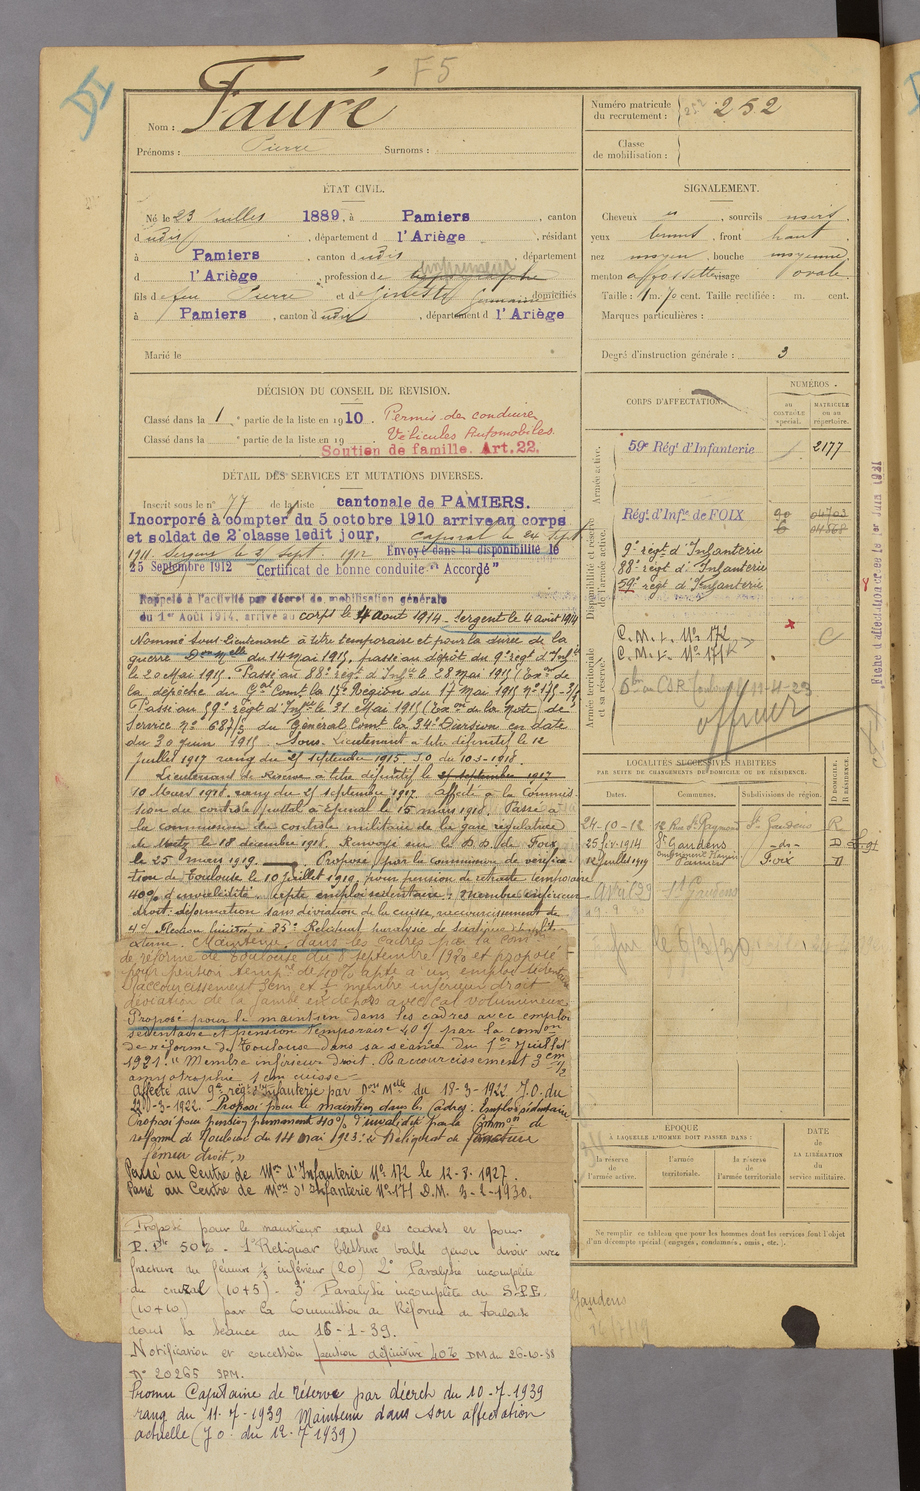 F5
Nom : Fauré
Prénoms : Pierre Surnoms :
Numéro matricule
du recrutement : 252 252
Classe
de mobilisation :
ÉTAT CIVIL.
Né le 23 juillet 1889, à Pamiers, canton
dudit, département d l'Ariège, résidant
à Pamiers, canton dudit, département
imprimeur
d l'Ariège, profession de typographe
fils de feu Pierre et de Ginesty Germaine domiciliés
à Pamiers, canton dudit, département d l'Ariège
Marié le
SIGNALEMENT.
Cheveux et, sourcils noirs,
yeux bruns, front haut
nez moyen, bouche moyenne,
menton à fossette visage ovale.
Taille : 1 m. 70 cent. Taille rectifiée : m. cent.
Marques particulières :
Degré d'instruction générale : 3
DÉCISION DU CONSEIL DE REVISION.
Classé dans la 1e partie de la liste en 1910. Permis de conduire
Classé dans la e partie de la liste en 19 . Véhicules Automobiles.
Soutien de famille. Art. 22.
DÉTAIL DES SERVICES ET MUTATIONS DIVERSES.
Inscrit sous le n° 77 de la liste cantonale de PAMIERS.
Incorporé à compter du 5 octobre 1910 arrive au corps
et soldat de 2e classe ledit jour, Caporal le 24 Sept
1911. Sergent le 25 sept. 1912 Envoyé dans la disponibilité le
25 Septembre 1912 "Certificat de bonne conduite "Accordé"
Rappelé à l'activité par décret de mobilisation générale
du 1er Août 1914, arrivé au corps le 4 août 1914 - Sergent le 4 août 1914
Nommé Sous-Lieutenant à titre temporaire et pour la durée de la
guerre Don Melle du 14 mai 1915, passé au dépôt du 9e régt d'Infie
le 20 Mai 1915. Passé au 88e régt d'Infie le 28 mai 1915 (Exon de
la dépêche du Gal Comt la 17e Région du 17 Mai 1915
Passé au 59e régt d'Infie le 31 Mai 1915 (Exon de la Note de
Service n° 687/S du Général Comt la 34e Division en date
du 30 juin 1915 - Sous-Lieutenant à titre définitif le 12
juillet 1917 rang du 25 septembre 1915 J.O du 10-3-1918.
Lieutenant de Réserve à titre définitif le 25 septembre 1917
10 Mars 1918. rang du 25 septembre 1917. affecté à la Commis-
sion du contrôle postal à Epinal le 15 mars 1918. Passé à
la commission de contrôle militaire de la gare régulatrice
de Metz le 18 décembre 1918. Renvoyé sur le D.D. de Foix
le 25 mars 1919. Proposé par la commission de vérifica-
tion de Toulouse le 10 juillet 1919, pour pension de retraite temporaire
40% d'invalidité. Apte emploi sedentaire. membre inférieur
droit: déformation sans déviation de la cuisse, raccourcissement de
4 c/ flexion limitée à 85° Reliquat paralysie de sciatique poplité
externe. Maintenu dans les cadres par la Comon
de réforme de Toulouse du 8 septembre 1920 et proposé
pour pension tempre de 40% apte à un emploi sédentaire
Raccourcissement 3cm, et membre inférieur droit
déviation de la jambe en dehors avec cal volumineux
Proposé pour le maintien dans les cadres avec emploi
sédentaire et pension temporaire 40% par la comon
de réforme de Toulouse dans sa séance du 1er juillet
1921. "Membre inférieur droit. Raccourcissement 3cm 1/2
amyotrophie 1 cm cuisse -
Affecté au 9e régt d'Infanterie par Don Melle du 18-3-1922 J.O. du
22-3-1922. Proposé pour le maintien dans les Cadres. Emploi sédentaire
Proposé pour pension permanent 40% d'invalidité par la Common de
réforme de Toulouse du 14 mai 1923: "Reliquat de fracture
fémur droit."
Passé au Centre de Mon d'Infanterie N° 172 le 12-8-1927.
Passé au Centre de Mon d'Infanterie N° 171 D.M. 3-2-1930.
Proposé pour le maintien dans les cadres et pour
P. Pte 50% - 1° Reliquat blessure balle genou droit avec
fracture du fémur 1/3 inférieur (20) 2° Paralysie incomplète
du crural (10+5) - 3° Paralysie incomplète du S.P.E.
(10+10) par la Commission de Réforme de Toulouse
dans la séance du 16-1-39.
Notification et concession pension définitive 40% DM du 26-10-38
N° 20265 3PM.
Promu Capitaine de réserve par décret du 10-7-1939
rang du 11-7-1939 Maintenu dans son affectation
actuelle (J.O. du 12-7-1939)
CORPS D'AFFECTATION.
NUMÉROS.
au contrôle spécial.
matricule ou au répertoire.
Armée active.
59e Régt d'Infanterie 2177
Disponibilité et réserve de l'armée active.
Régt d'Infie de FOIX 90 04703
6 04868
9e régt d'Infanterie
88e régt d'Infanterie
59e régt d'Infanterie
Armée territoriale et sa réserve.
C.M.I. N° 172
C.M.I. N° 171
CSR Toulouse 11-4-23
officier
Fiche d'affectation créée le 1er Juin 1921
LOCALITÉS SUCCESSIVES HABITÉES
PAR SUITE DE CHANGEMENTS DE DOMICILE OU DE RÉSIDENCE.
Dates. Communes. Subdivisions de région. D DOMICILE. R RÉSIDENCE.
24-10-12 12 Rue St Raymond St Gaudens R
25 fév 1914 St Gaudens -do- D
12 juillet 1919 Pamiers Foix D
Avril 39 St Gaudens
le 6/3/30
ÉPOQUE
À LAQUELLE L'HOMME DOIT PASSER DANS :
la réserve de l'armée active.
l'armée territoriale.
la réserve de l'armée territoriale
DATE de LA LIBÉRATION du service militaire.
Ne remplir ce tableau que pour les hommes dont les services font l'objet
d'un décompte spécial (engagés, condamnés, omis, etc.).
Gaudens